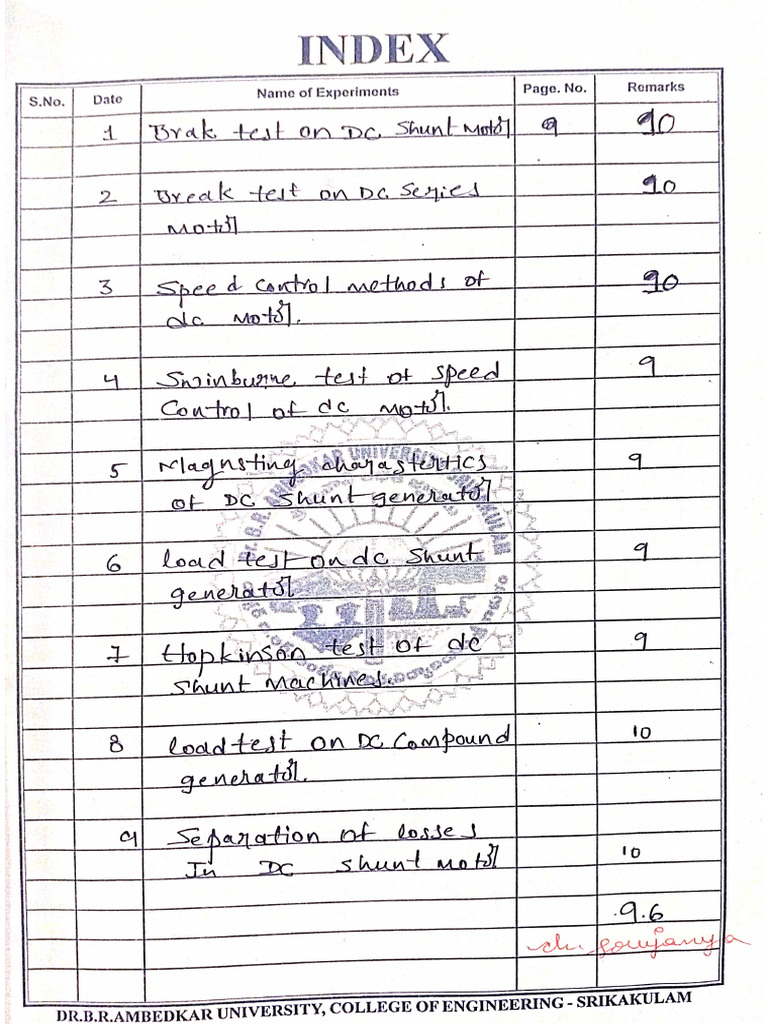 INDEX
S.No. Date Name of Experiments Page. No. Remarks
1 Brak test on DC Shunt Motor 9 90
2 Break test on DC Series 90
Motor
3 Speed control methods of 90
dc Motor.
4 Swinburne test of speed 9
Control of dc Motor.
5 Magnsting charasterttcs 9
of DC Shunt generator
6 load test on dc Shunt 9
generator
7 Hopkinson test of dc 9
Shunt Machines.
8 load test on DC Compound 10
generator.
9 Separation of losses
In DC Shunt Motor 10
9.6
ch. Sowjanya
Dr. B.R. AMBEDKAR UNIVERSITY SRIKAKULAM
DR.B.R.AMBEDKAR UNIVERSITY, COLLEGE OF ENGINEERING - SRIKAKULAM